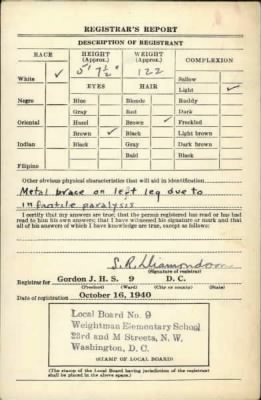 REGISTRAR'S REPORT
DESCRIPTION OF REGISTRANT
RACE HEIGHT (Approx.) WEIGHT (Approx.) COMPLEXION
White ✓ 5' 7½" 122 Sallow
Light ✓
EYES HAIR
Negro Blue Blonde Ruddy
Gray Red Dark
Oriental Hazel Brown ✓ Freckled
Brown ✓ Black Light brown
Indian Black Gray Dark brown
Bald Black
Filipino
Other obvious physical characteristics that will aid in identification
Metal brace on left leg due to
infantile paralysis
I certify that my answers are true; that the person registered has read or has had
read to him his own answers; that I have witnessed his signature or mark and that
all of his answers of which I have knowledge are true, except as follows:
S. R. Diamondson
(Signature of registrar)
Registrar for Gordon J. H. S. 9 D. C.
(Precinct) (Ward) (City or county) (State)
Date of registration October 16, 1940
Local Board No. 9
Weightman Elementary School
23rd and M Streets, N. W.
Washington, D. C.
(STAMP OF LOCAL BOARD)
(The stamp of the Local Board having jurisdiction of the registrant
shall be placed in the above space.)